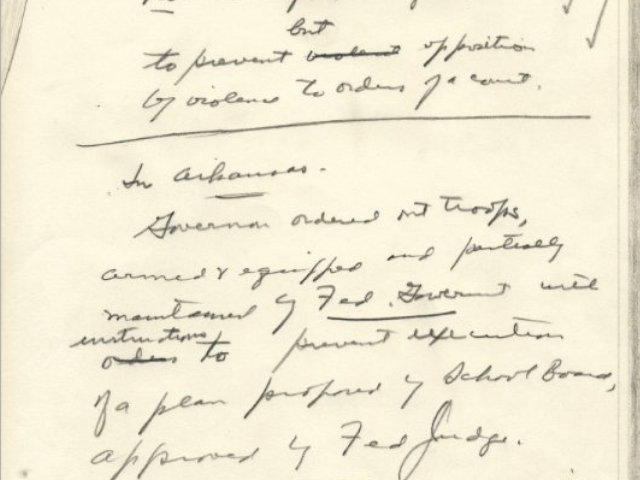 but
to prevent violent opposition
by violence to orders of a court.
In Arkansas.
Governor ordered out troops,
armed & equipped and partially
maintained by Fed. Goverment with
instructions
orders to prevent execution
of a plan proposed by School Board,
approved by Fed Judge.